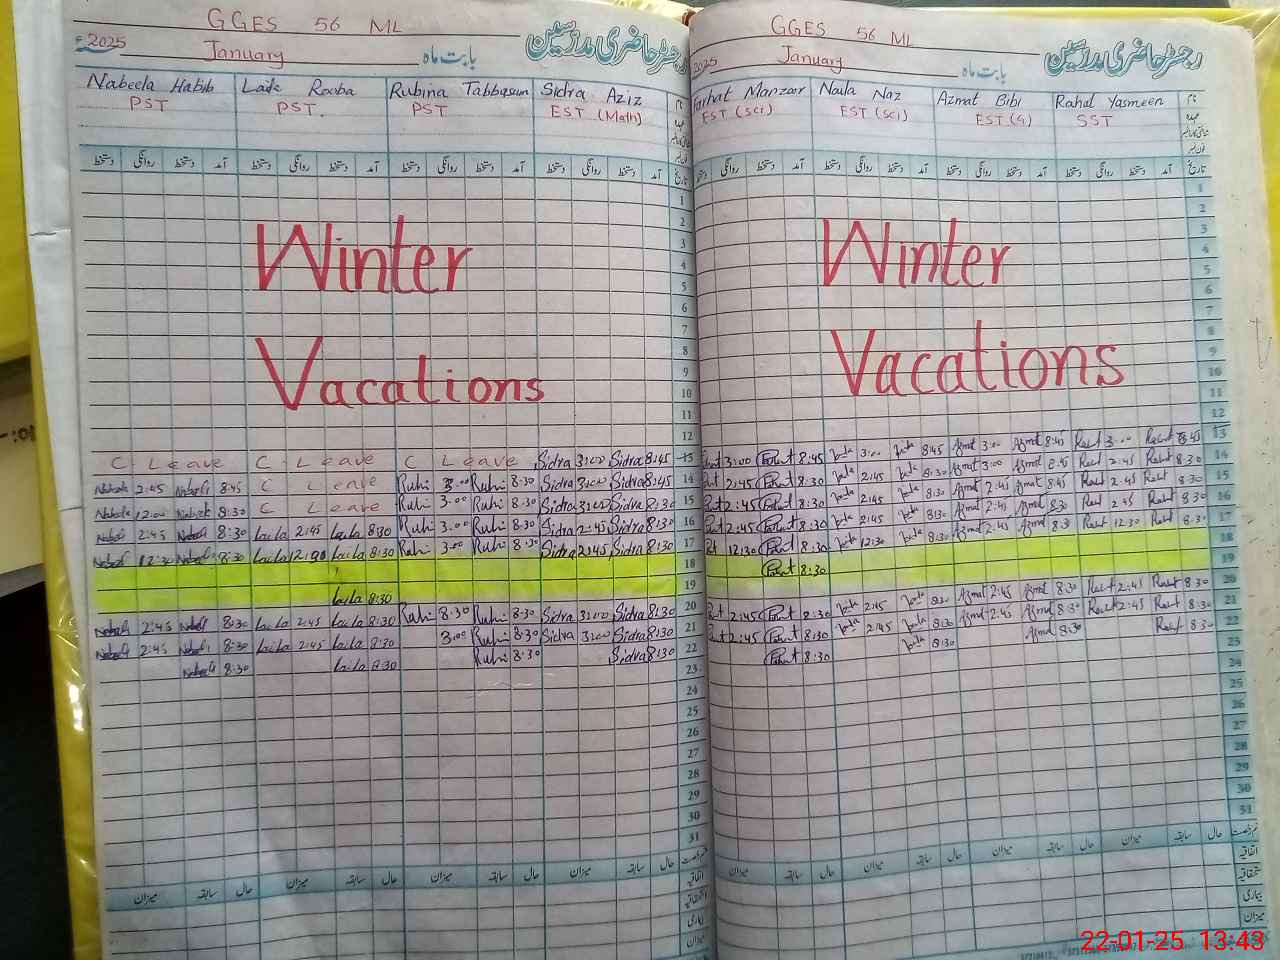 GGES 56 ML
2025ء January بابت ماہ رجسٹر حاضری مدرسین
Nabeela Habib Laila Rooba Rubina Tabbasum Sidra Aziz
PST PST. PST EST (Math)
دستخط روانگی دستخط آمد دستخط روانگی دستخط آمد دستخط روانگی دستخط آمد دستخط روانگی دستخط آمد تاریخ
1
2
Winter 3
4
5
6
7
8
Vacations 9
10
11
12
C Leave C Leave C Leave Sidra 3:00 Sidra 8:45 13
2:45 8:45 C Leave Ruhi 3:00 Ruhi 8:30 Sidra 3:00 Sidra 8:45 14
12:00 8:30 C Leave Ruhi 3:00 Ruhi 8:30 Sidra 3:00 Sidra 8:30 15
2:45 8:30 Laila 2:45 Laila 8:30 Ruhi 3:00 Ruhi 8:30 Sidra 2:45 Sidra 8:30 16
8:30 Laila Laila 8:30 Ruhi 3:00 Ruhi 8:30 Sidra 2:45 Sidra 8:30 17
18
Laila 8:30 19
2:45 8:30 Laila 2:45 Laila 8:30 Ruhi 8:30 Ruhi 8:30 Sidra 3:00 Sidra 8:30 20
2:45 8:30 Laila 2:45 Laila 8:30 3:00 Ruhi 8:30 Sidra 3:00 Sidra 8:30 21
8:30 Laila 8:30 Ruhi 8:30 Sidra 8:30 22
23
24
25
26
27
28
29
30
31
میزان سابقہ حال میزان سابقہ حال میزان سابقہ حال میزان سابقہ حال
اتفاقیہ
استحقاقیہ
بیماری
میزان
GGES 56 ML
2025 January بابت ماہ رجسٹر حاضری مدرسین
Farhat Manzoor Naila Naz Azmat Bibi Rahat Yasmeen نام
EST (Sci) EST (Sci) EST (G) SST عہدہ
دستخط روانگی دستخط آمد دستخط روانگی دستخط آمد دستخط روانگی دستخط آمد دستخط روانگی دستخط آمد تاریخ
1
2
Winter 3
4
5
6
7
8
Vacations 9
10
11
12
3:00 Farhat 8:45 3:00 8:45 Azmat 3:00 Azmat 8:45 Rahat 3:00 Rahat 8:45 13
2:45 Farhat 8:30 2:45 8:30 Azmat 3:00 Azmat 8:45 Rahat 2:45 Rahat 8:30 14
2:45 Farhat 8:30 2:45 8:30 Azmat 2:45 Azmat 8:45 Rahat 2:45 Rahat 8:30 15
2:45 Farhat 8:30 2:45 8:30 Azmat 2:45 Azmat 8:30 Rahat 2:45 Rahat 8:30 16
12:30 Farhat 8:30 12:30 8:30 Azmat 2:45 Azmat 8:30 Rahat 12:30 Rahat 8:30 17
Farhat 8:30 18
19
2:45 Farhat 8:30 2:45 8:30 Azmat 2:45 Azmat 8:30 Rahat 2:45 Rahat 8:30 20
2:45 Farhat 8:30 2:45 8:30 Azmat 2:45 Azmat 8:30 Rahat 2:45 Rahat 8:30 21
Farhat 8:30 8:30 Azmat 8:30 Rahat 8:30 22
23
24
25
26
27
28
29
30
31
میزان سابقہ حال میزان سابقہ حال میزان سابقہ حال میزان سابقہ حال
اتفاقیہ
استحقاقیہ
بیماری
میزان
22-01-25 13:43